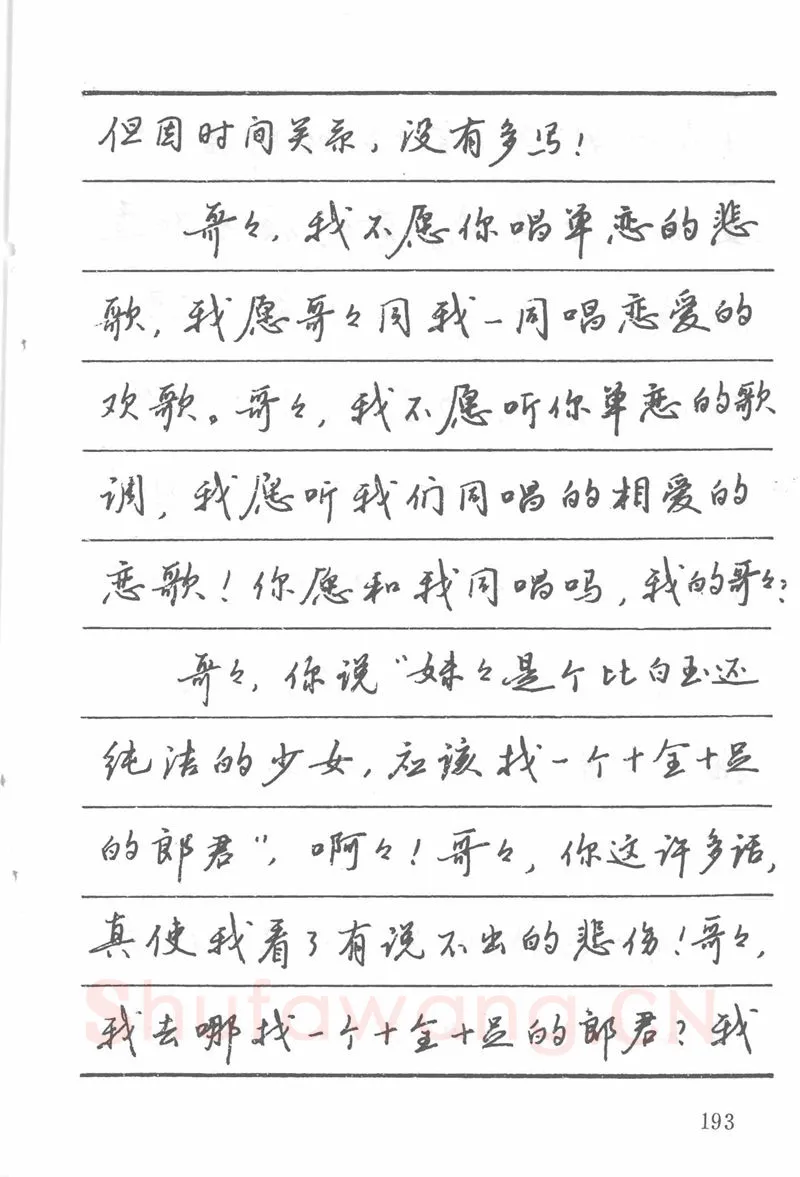 但因时间关系，没有多写！
哥々，我不愿你唱单恋的悲
歌，我愿哥々同我一同唱恋爱的
欢歌。哥々，我不愿听你单恋的歌
调，我愿听我们同唱的相爱的
恋歌！你愿和我同唱吗，我的哥々？
哥々，你说“妹々是个比白玉还
纯洁的少女，应该找一个十全十足
的郎君”，啊々！哥々，你这许多话，
真使我看了有说不出的悲伤！哥々，
我去哪找一个十全十足的郎君？我
Shufawang.CN
193